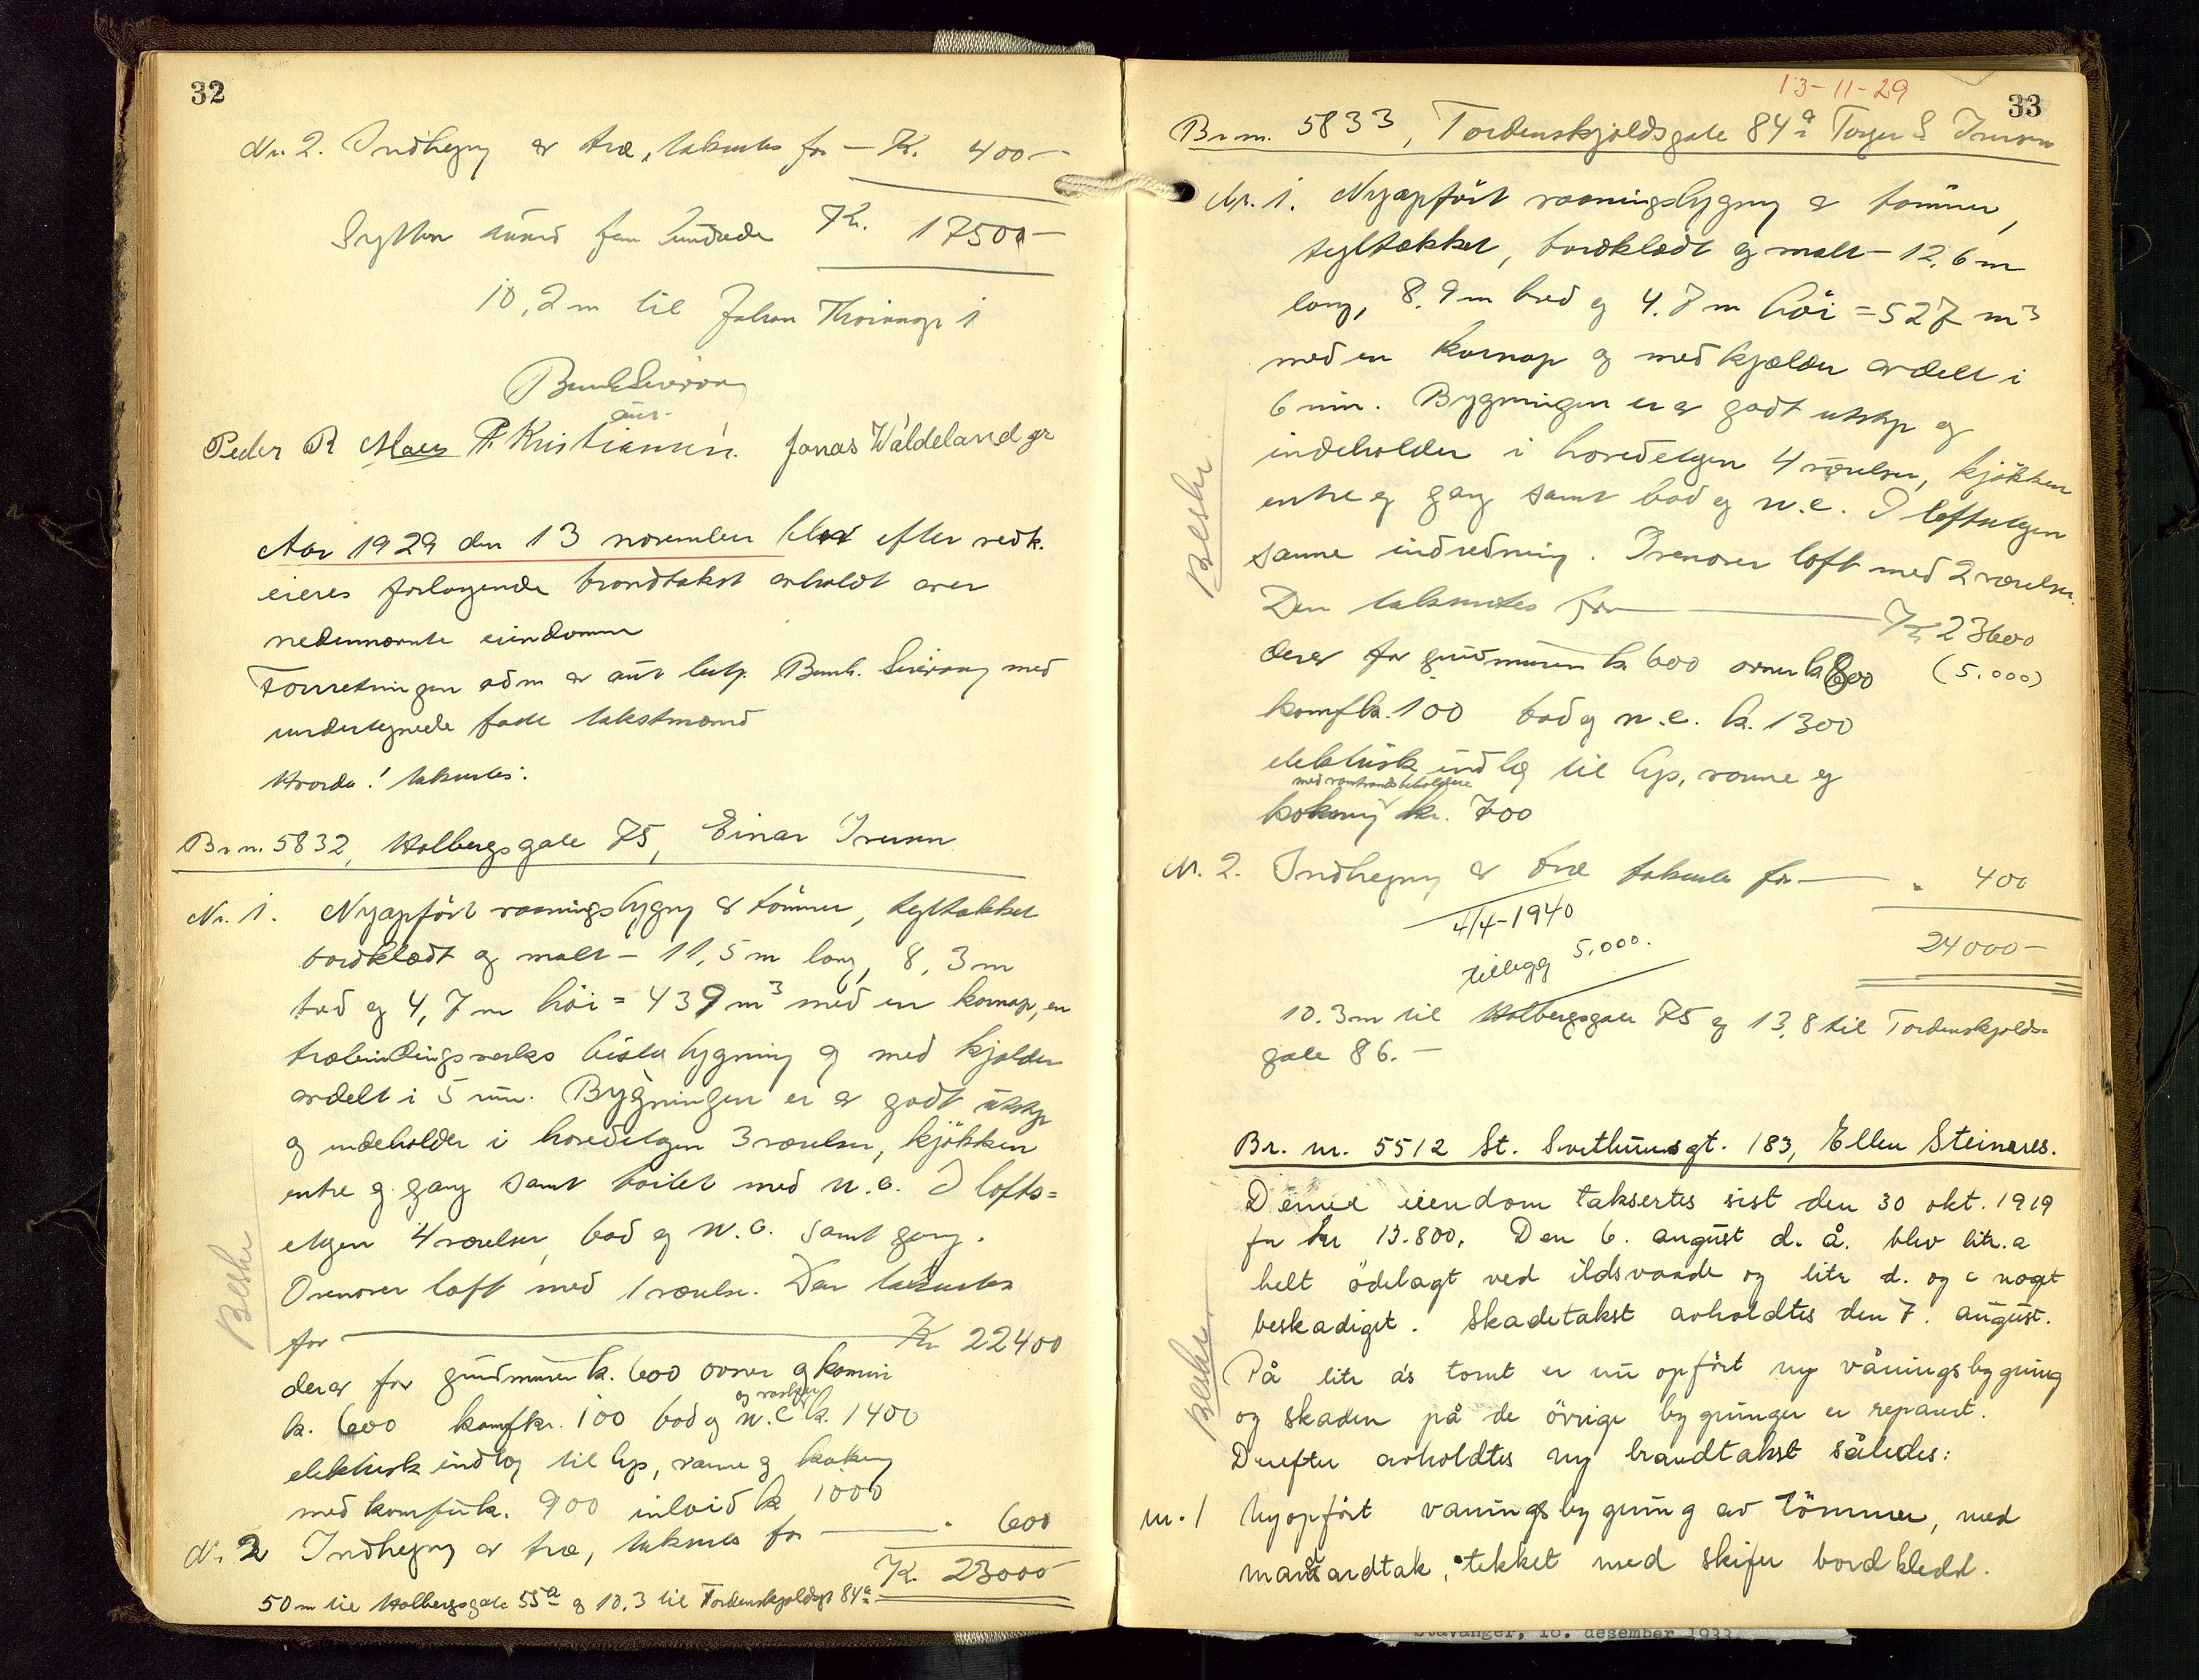 32
Nr. 2. Indhegning av træ, takseres for — Kr. 400 —
Sytten tusind fem hundrede Kr. 17500 —
10,2 m til Johan
Bernh. Siversen
Peder R Maus P. Kristiansen. Jonas Waldeland jr
Aar 1929 den 13 november blev efter vedk.
eieres forlangende brandtakst avholdt over
nedennævnte eiendomme
Forretningen adm av aut. Bernh. Siversen med
undertegnede faste takstmænd
Hvorda! takseres:
Br. nr. 5832, Holbergsgate 75, Einar Iversen
Nr. 1. Nyopført vaaningsbygning av tømmer, tegltækket
bordklædt og malt — 11,5 m lang, 8,3 m
bred og 4,7 m høi = 439 m³ med en karnap, en
træbindingsverks bislagbygning og med kjelder
avdelt i 5 rum. Bygningen er av godt utstyr
og indeholder i hovedetagen 3 værelser, kjøkken
entre og gang samt toilet med w.c. I lofts=
etagen 4 værelser, bad og w.c. samt gang.
Ovenover loft med 1 værelse. Den takseres
for — Kr 22400
derav for grundmuren kr. 600 ovner og kamin
kr. 600 komf kr. 100 bad og w.c og vasker kr. 1400
elektrisk indlæg til lys, varme og kokning
med komfur kr. 900 inlaid kr 1000
Nr. 2 Indhegning av træ, takseres for — " 600
Kr. 23000
50 m til Holbergsgate 55ᵃ og 10.3 til Tordenskjoldsgt 84ᵃ
Beskr
13-11-29
33
Br. nr. 5833, Tordenskjoldsgate 84ᵃ Torger S Iversen
Nr. 1. Nyopført vaaningsbygning av tømmer,
tegltækket, bordklædt og malt — 12,6 m
lang, 8.9 m bred og 4.7 m høi = 527 m³
med en karnap og med kjælder avdelt i
6 rum. Bygningen er av godt utstyr og
indeholder i hovedetagen 4 værelser, kjøkken
entre og gang samt bad og w.c. I loftsetagen
samme indredning. Ovenover loft med 2 værelser.
Den takseres for — Kr 23600
derav for grundmuren kr 600 ovner kr 800 (5.000)
komf kr. 100 bad og w.c. kr. 1300
elektrisk indlæg til lys, varme og
med varmtvandsbeholdere
kokning kr. 700
Nr. 2. Indhegning av træ takseres for — " 400
4/4-1940
24000 —
tillegg 5.000.
10.3m til Holbergsgate 75 og 13,8 til Tordenskjolds=
gate 86. —
Beskr
Br. nr. 5512 St. Svithunsgt. 183, Ellen Steinsnes.
Denne eiendom taksertes sist den 30 okt. 1919
for kr 13.800. Den 6. august d. å. blev litr. a
helt ödelagt ved ildsvaade og litr d. og c noget
beskadiget. Skadetakst avholdtes den 7. august.
På litr a's tomt er nu opført ny våningsbygning
og skaden på de övrige bygninger er reparert.
Derefter avholdtes ny brandtakst således:
nr. 1 Nyopført vaningsbygning av tömmer, med
mansardtak, tekket med skifer bordkledd.
Beskr.
Stavanger, 18. desember 1933.